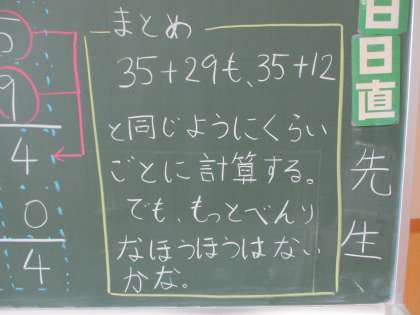 まとめ
35+29も、35+12
と同じようにくらい
ごとに計算する。
でも、もっとべんり
なほうほうはない
かな。
5
9
4
0
4
日直
先生